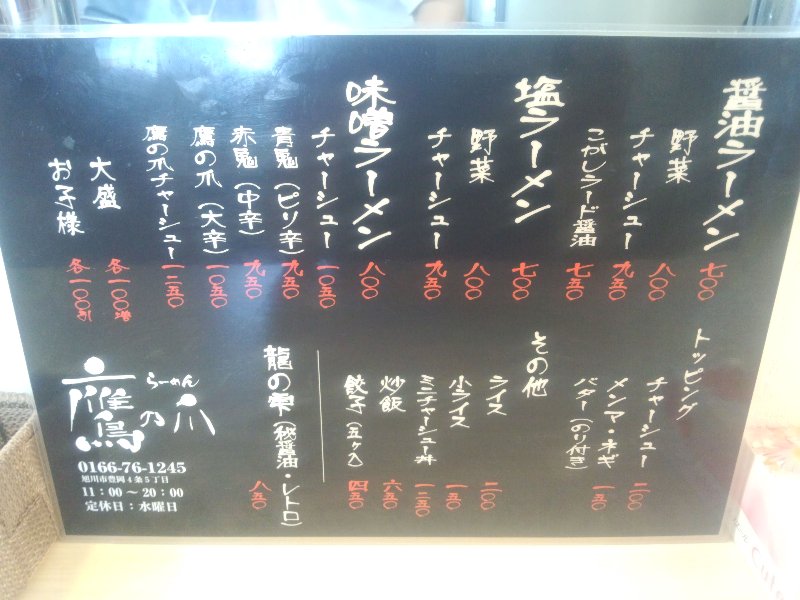 醤油ラーメン 七〇〇
野菜 八〇〇
チャーシュー 九五〇
こがしラード醤油 七五〇
塩ラーメン 七〇〇
野菜 八〇〇
チャーシュー 九五〇
味噌ラーメン 八〇〇
チャーシュー 一〇五〇
青鬼(ピリ辛) 九五〇
赤鬼(中辛) 九五〇
鷹の爪(大辛) 一〇五〇
鷹の爪チャーシュー 一二五〇
大盛 各一〇〇増
お子様 各一〇〇引
トッピング
チャーシュー 二〇〇
メンマ・ネギ
バター(のり付き) 一五〇
その他
ライス 二〇〇
小ライス 一五〇
ミニチャーシュー丼 二五〇
炒飯 六五〇
餃子(五ケ入) 四五〇
龍の雫(秘醤油・レトロ) 八五〇
らーめん
鷹乃爪
0166-76-1245
旭川市豊岡4条5丁目
11:00〜20:00
定休日:水曜日